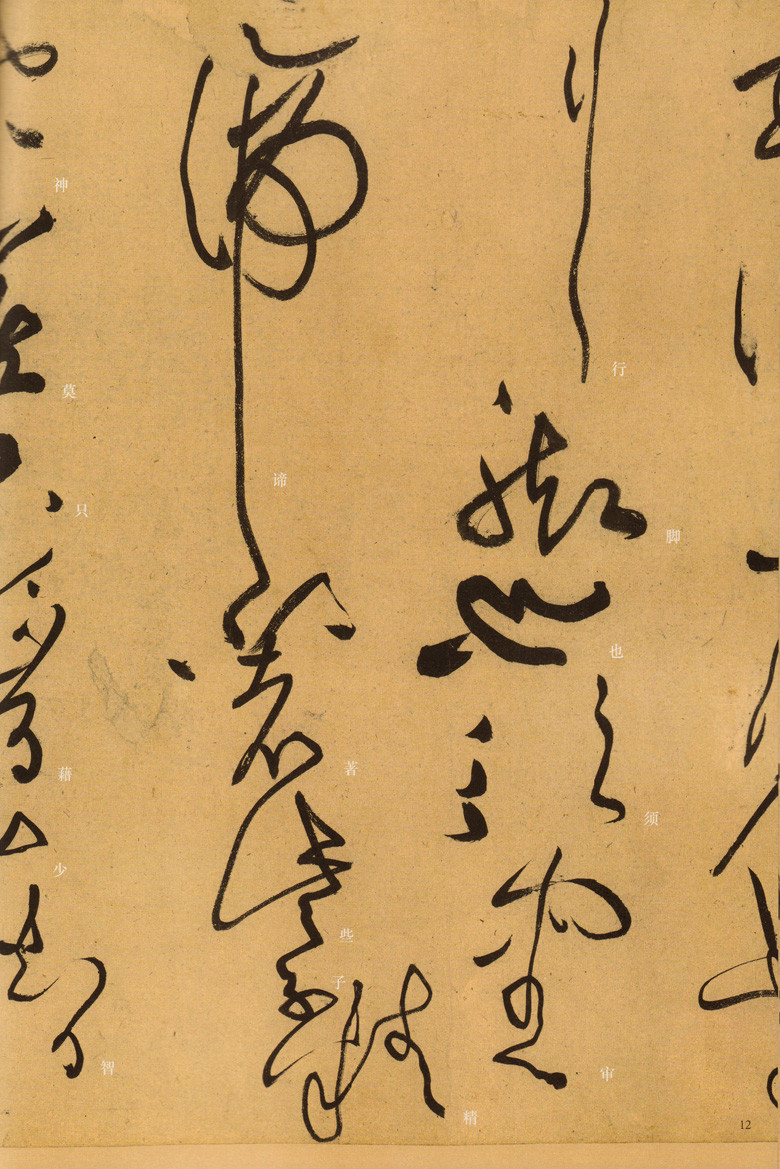 行脚也须审
谛著些子精
神莫只藉少智
12